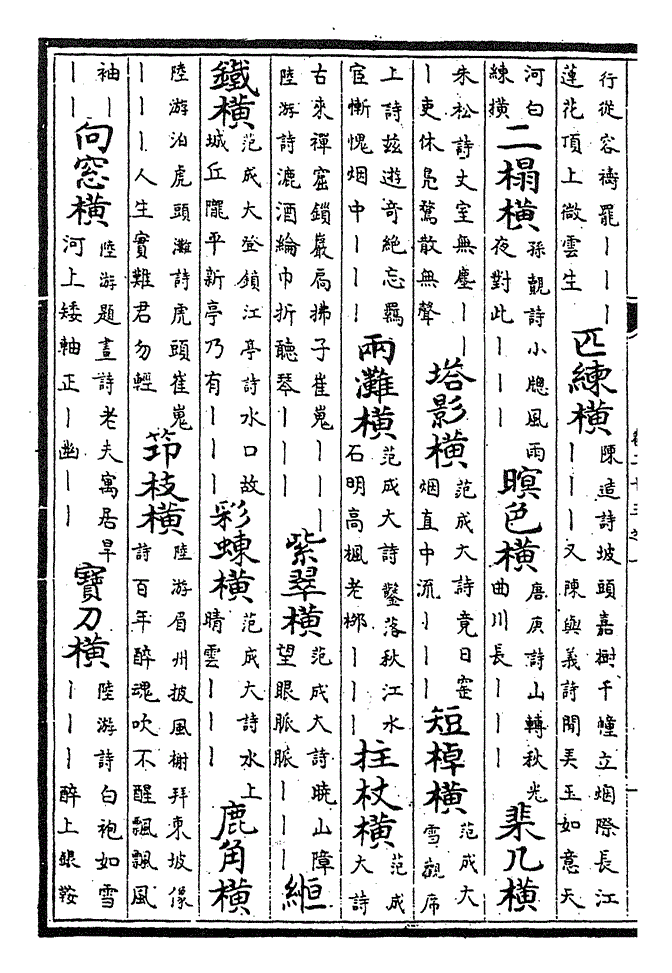 行從容禱罷｜｜｜
蓮花頂上微雲生
匹練橫
陳造詩坡頭嘉樹千幢立烟際長江
｜｜｜又陳與義詩閒弄玉如意天
河白
練橫
二榻橫
孫覿詩小牕風雨
夜對此｜｜｜
暝色橫
唐庚詩山轉秋光
曲川長｜｜｜
棐几橫
朱松詩丈室無塵｜｜
｜吏休鳧鶩散無聲
塔影橫
范成大詩竟日窰
烟直中流｜｜｜
短棹橫
范成大
雪觀席
上詩兹遊奇絕忘羈
宦慚愧烟中｜｜｜
兩灘橫
范成大詩鑿落秋江水
石明高楓老栁｜｜｜
拄杖橫
范成
大詩
古來禪窟鎖巖扃拂子崔嵬｜｜｜
陸游詩漉酒綸巾折聽琴｜｜｜
紫翠橫
范成大詩曉山障
望眼脈脈｜｜｜
絚
鐵橫
范成大登鎖江亭詩水口故
城丘隴平新亭乃有｜｜｜
彩蝀橫
范成大詩水上
晴雲｜｜｜
鹿角橫
陸游泊虎頭灘詩虎頭崔嵬
｜｜｜人生實難君勿輕
筇枝橫
陸游眉州披風榭拜東坡像
詩百年醉魂吹不醒飄飄風
袖｜
｜｜
向窓橫
陸游題畫詩老夫寓居旱
河上矮軸正｜幽｜｜
寶刀橫
陸游詩白袍如雪
｜｜｜醉上銀鞍